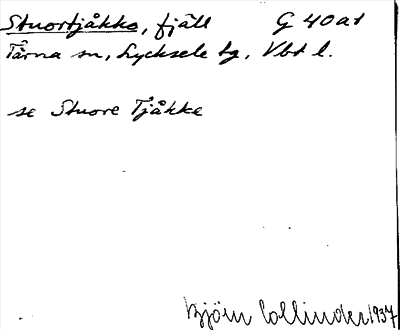 Stuortjåkko, fjäll G 40a1
Tärna sn, Lycksele tg, Vbt l.
se Stuore Tjåkke
Björn Collinder 1937